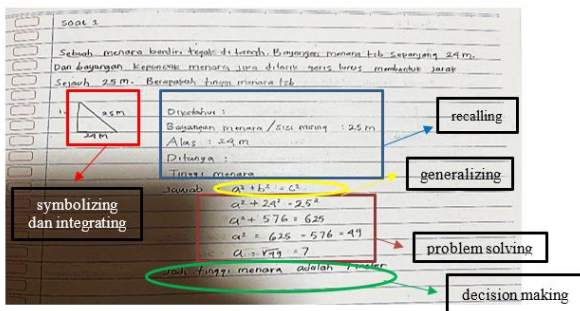 Soal 1
Sebuah menara berdiri tegak di tanah. Bayangan menara tsb sepanjang 24 m.
Dan bayangan kepuncak menara jika ditarik garis lurus membentuk jarak
Sejauh 25 m. Berapakah tinggi menara tsb
1.
25m
24m
Diketahui :
Bayangan menara / sisi miring : 25 m
Alas : 24 m
Ditanya :
Tinggi menara
Jawab a² + b² = c²
a² + 24² = 25²
a² + 576 = 625
a² = 625 - 576 = 49
a = √49 = 7
Jadi tinggi menara adalah 7 meter
recalling
generalizing
symbolizing
dan integrating
problem solving
decision making